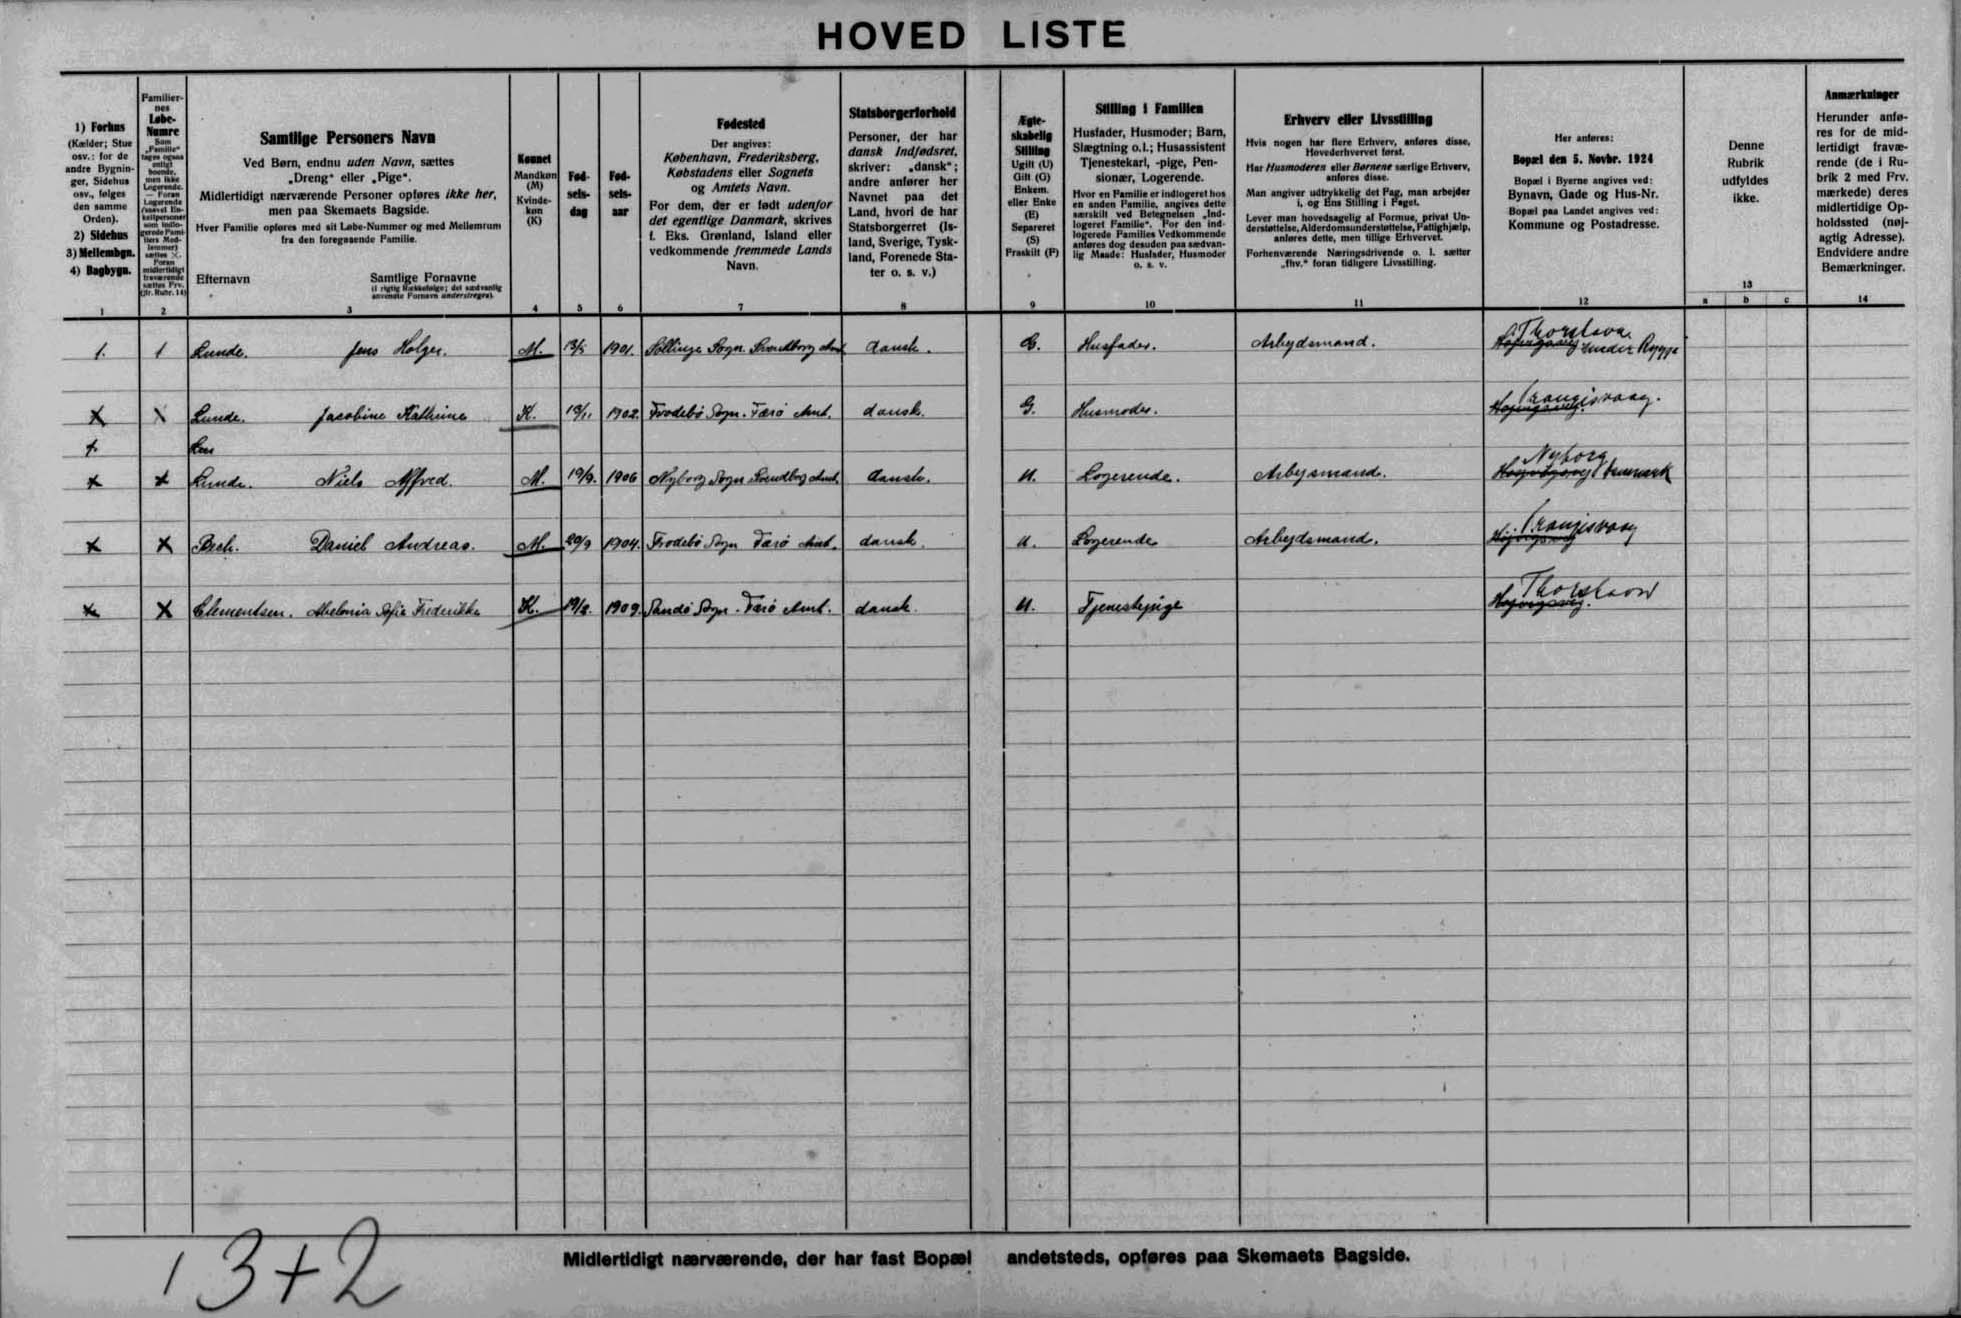 HOVED LISTE
1) Forhus
(Kælder; Stue
osv.: for de
andre Bygnin-
ger, Sidehus
osv., følges
den samme
Orden).
2) Sidehus
3) Mellembgn.
4) Bagbygn.
1
Familier-
nes
Løbe-
Numre
Som
„Familie"
tages ogsaa
enligt
boende,
men ikke
Logerende.
— Foran
Logerende
sættes ×.
Foran
midlertidigt
fraværende
sættes Frv.
(jfr. Rubr. 14)
2
Samtlige Personers Navn
Ved Børn, endnu uden Navn, sættes
„Dreng" eller „Pige".
Midlertidigt nærværende Personer opføres ikke her,
men paa Skemaets Bagside.
Hver Familie opføres med sit Løbe-Nummer og med Mellemrum
fra den foregaaende Familie.
Efternavn
Samtlige Fornavne
(i rigtig Rækkefølge; det sædvanlig
anvendte Fornavn understreges).
3
Kønnet
Mandkøn
(M)
Kvinde-
køn
(K)
4
Fød-
sels-
dag
5
Fød-
sels-
aar
6
Fødested
Der angives:
København, Frederiksberg,
Købstadens eller Sognets
og Amtets Navn.
For dem, der er født udenfor
det egentlige Danmark, skrives
f. Eks. Grønland, Island eller
vedkommende fremmede Lands
Navn.
7
Statsborgerforhold
Personer, der har
dansk Indfødsret,
skriver: „dansk";
andre anfører her
Navnet paa det
Land, hvori de har
Statsborgerret (Is-
land, Sverige, Tysk-
land, Forenede Sta-
ter o. s. v.)
8
Ægte-
skabelig
Stilling
Ugift (U)
Gift (G)
Enkem.
eller Enke
(E)
Separeret
(S)
Fraskilt (F)
9
Stilling i Familien
Husfader, Husmoder; Barn,
Slægtning o.l.; Husassistent
Tjenestekarl, -pige, Pen-
sionær, Logerende.
Hvor en Familie er indlogeret hos
en anden Familie, angives dette
særskilt ved Betegnelsen „Ind-
logeret Familie". For den ind-
logerede Families Vedkommende
anføres dog desuden paa sædvan-
lig Maade: Husfader, Husmoder
o. s. v.
10
Erhverv eller Livsstilling
Hvis nogen har flere Erhverv, anføres disse,
Hovederhvervet først.
Har Husmoderen eller Børnene særlige Erhverv,
anføres disse.
Man angiver udtrykkelig det Fag, man arbejder
i, og Ens Stilling i Faget.
Lever man hovedsagelig af Formue, privat Un-
derstøttelse, Alderdomsunderstøttelse, Fattighjælp,
anføres dette, men tillige Erhvervet.
Forhenværende Næringsdrivende o. l. sætter
„fhv." foran tidligere Livsstilling.
11
Her anføres:
Bopæl den 5. Novbr. 1924
Bopæl i Byerne angives ved:
Bynavn, Gade og Hus-Nr.
Bopæl paa Landet angives ved:
Kommune og Postadresse.
12
Denne
Rubrik
udfyldes
ikke.
13
a b c
Anmærkninger
Herunder anfø-
res for de mid-
lertidigt fravæ-
rende (de i Ru-
brik 2 med Frv.
mærkede) deres
midlertidige Op-
holdssted (nøj-
agtig Adresse).
Endvidere andre
Bemærkninger.
14
1. 1 Lunde. Jens Holger. M. 13/5 1901. Sollinge Sogn. Svendborg Amt dansk. G. Husfader. Arbejdsmand. Thorshavn
× × Lunde. Jacobine Kathrine K. 13/11 1902. Frodebø Sogn. Færø Amt. dansk. G. Husmoder. Højvigsvej. Trangisvaag.
×
× × Lunde. Niels Alfred. M. 19/9. 1906 Nyborg Sogn Svendborg Amt. dansk. U. Logerende. Arbejsmand. Højvigsvej Nyborg Danmark
× × Bech. Daniel Andreas. M. 20/9 1904. Frodebø Sogn Færø Amt. dansk. U. Logerende Arbejdsmand. Højvigsvej Trangisvaag
× × Clementsen. Abelonia Sofie Frederikke K. 19/2. 1909. Sandø Sogn. Færø Amt. dansk. U. Tjenestepige Højvigsvej. Thorshavn
Midlertidigt nærværende, der har fast Bopæl andetsteds, opføres paa Skemaets Bagside.
1 3+2